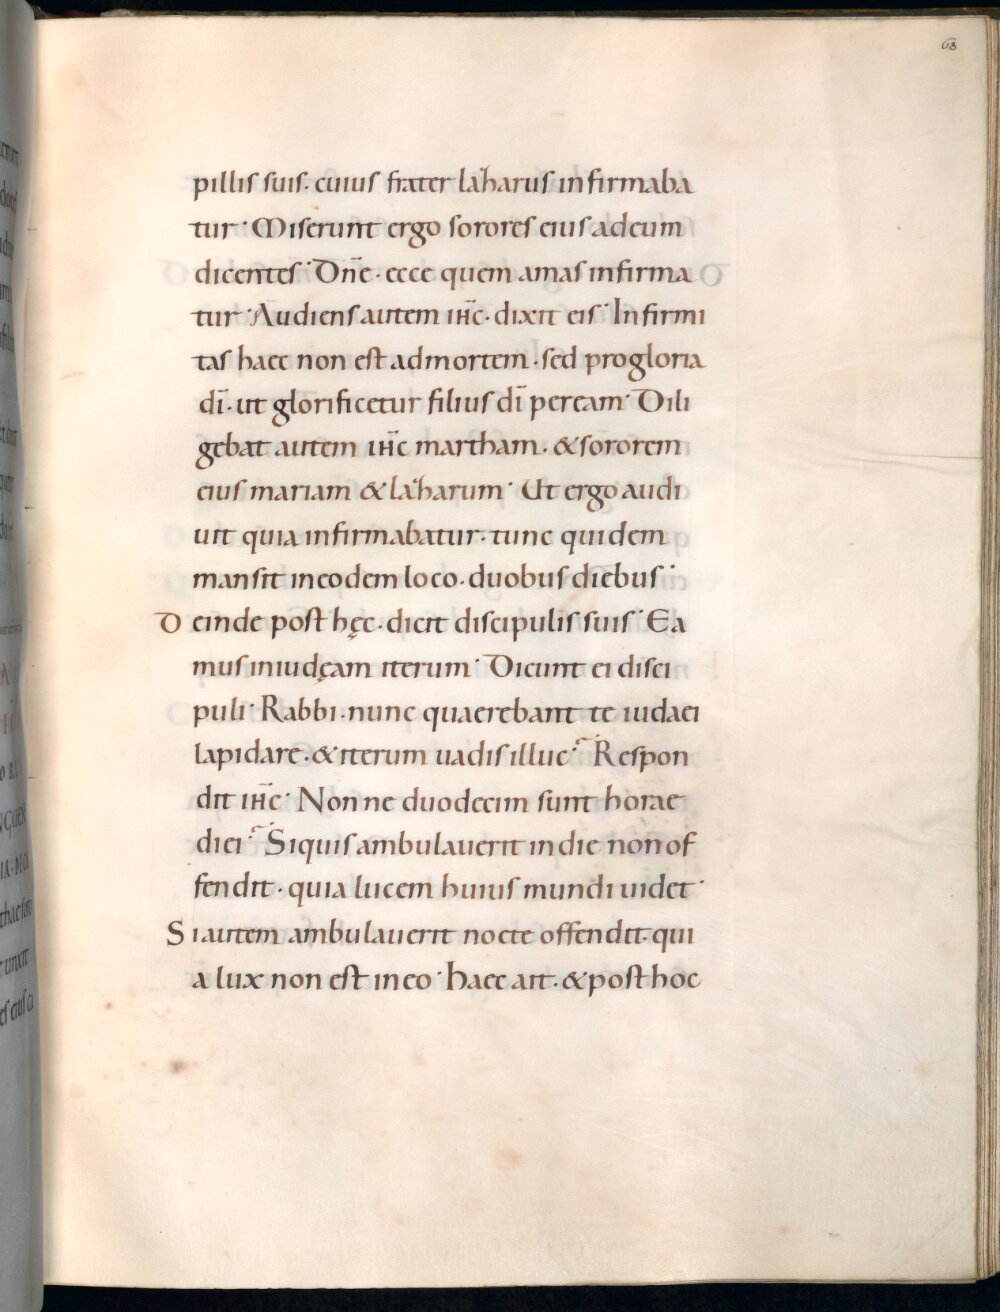 68
pillis suis· cuius frater lazharus infirmaba
tur· Miserunt ergo sorores eius adeum
dicentes· Dn̄e· ecce quem amas infirma
tur· Audiens autem ih̄c· dixit eis· Infirmi
tas haec non est admortem· sed progloria
dī· ut glorificetur filius dī peream· Dili
gebat autem ih̄c martham· & sororem
eius mariam & lazharum· Ut ergo audi
uit quia infirmabatur· tunc quidem
mansit ineodem loco· duobus diebus·
Deinde post hęc· dicit discipulis suis· Ea
mus iniudęam iterum· Dicunt ei disci
puli· Rabbi· nunc quaerebant te iudaei
lapidare· & iterum uadis illuc? Respon
dit ih̄c· Nonne duodecim sunt horae
diei? Siquis ambulauerit indie non of
fendit· quia lucem huius mundi uidet·
Siautem ambulauerit nocte offendit· qui
a lux non est ineo· haec ait· & post hoc